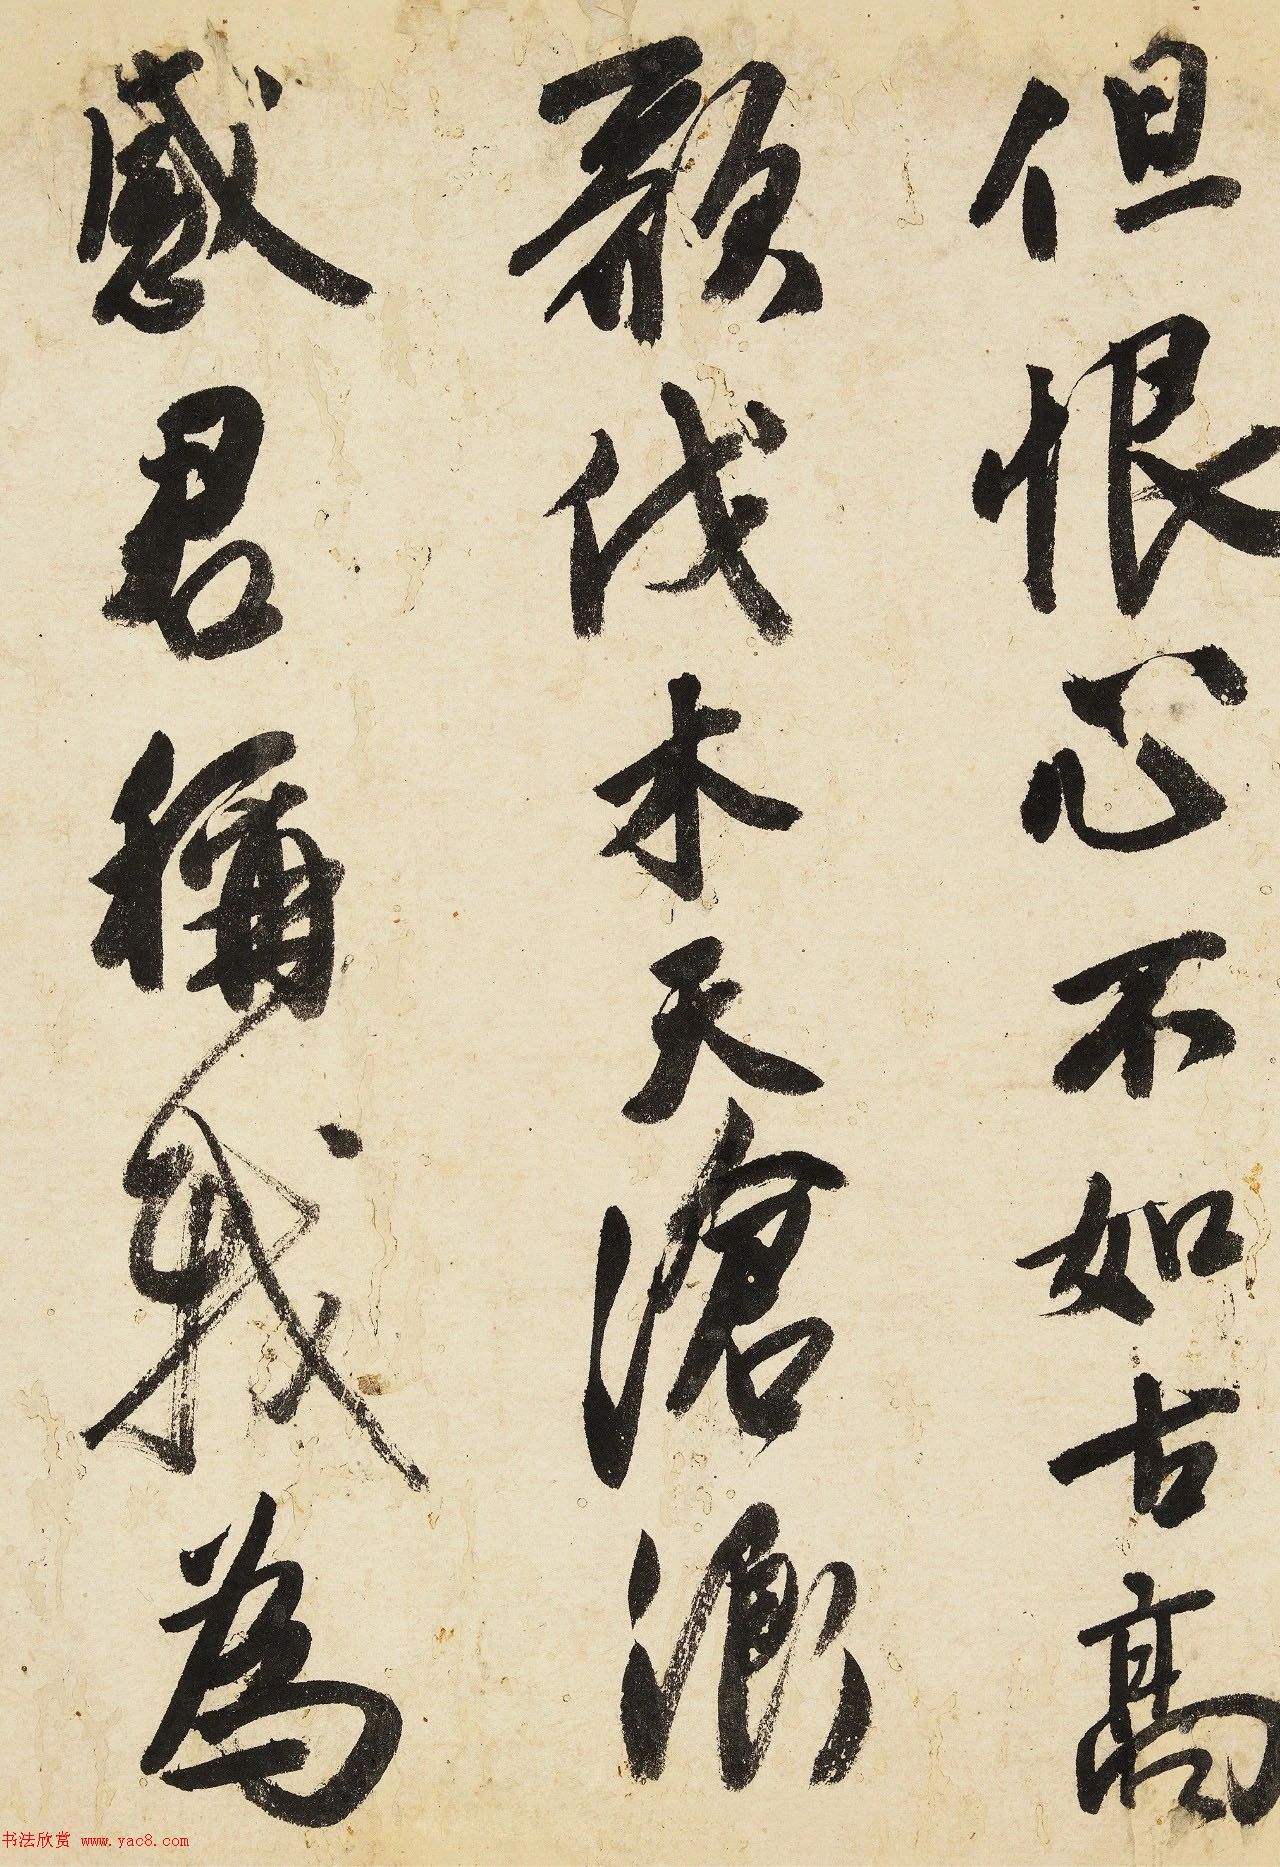 但恨心不如古高
歌伐木天滄浪
感君稱我為
书法欣赏 www.yac8.com